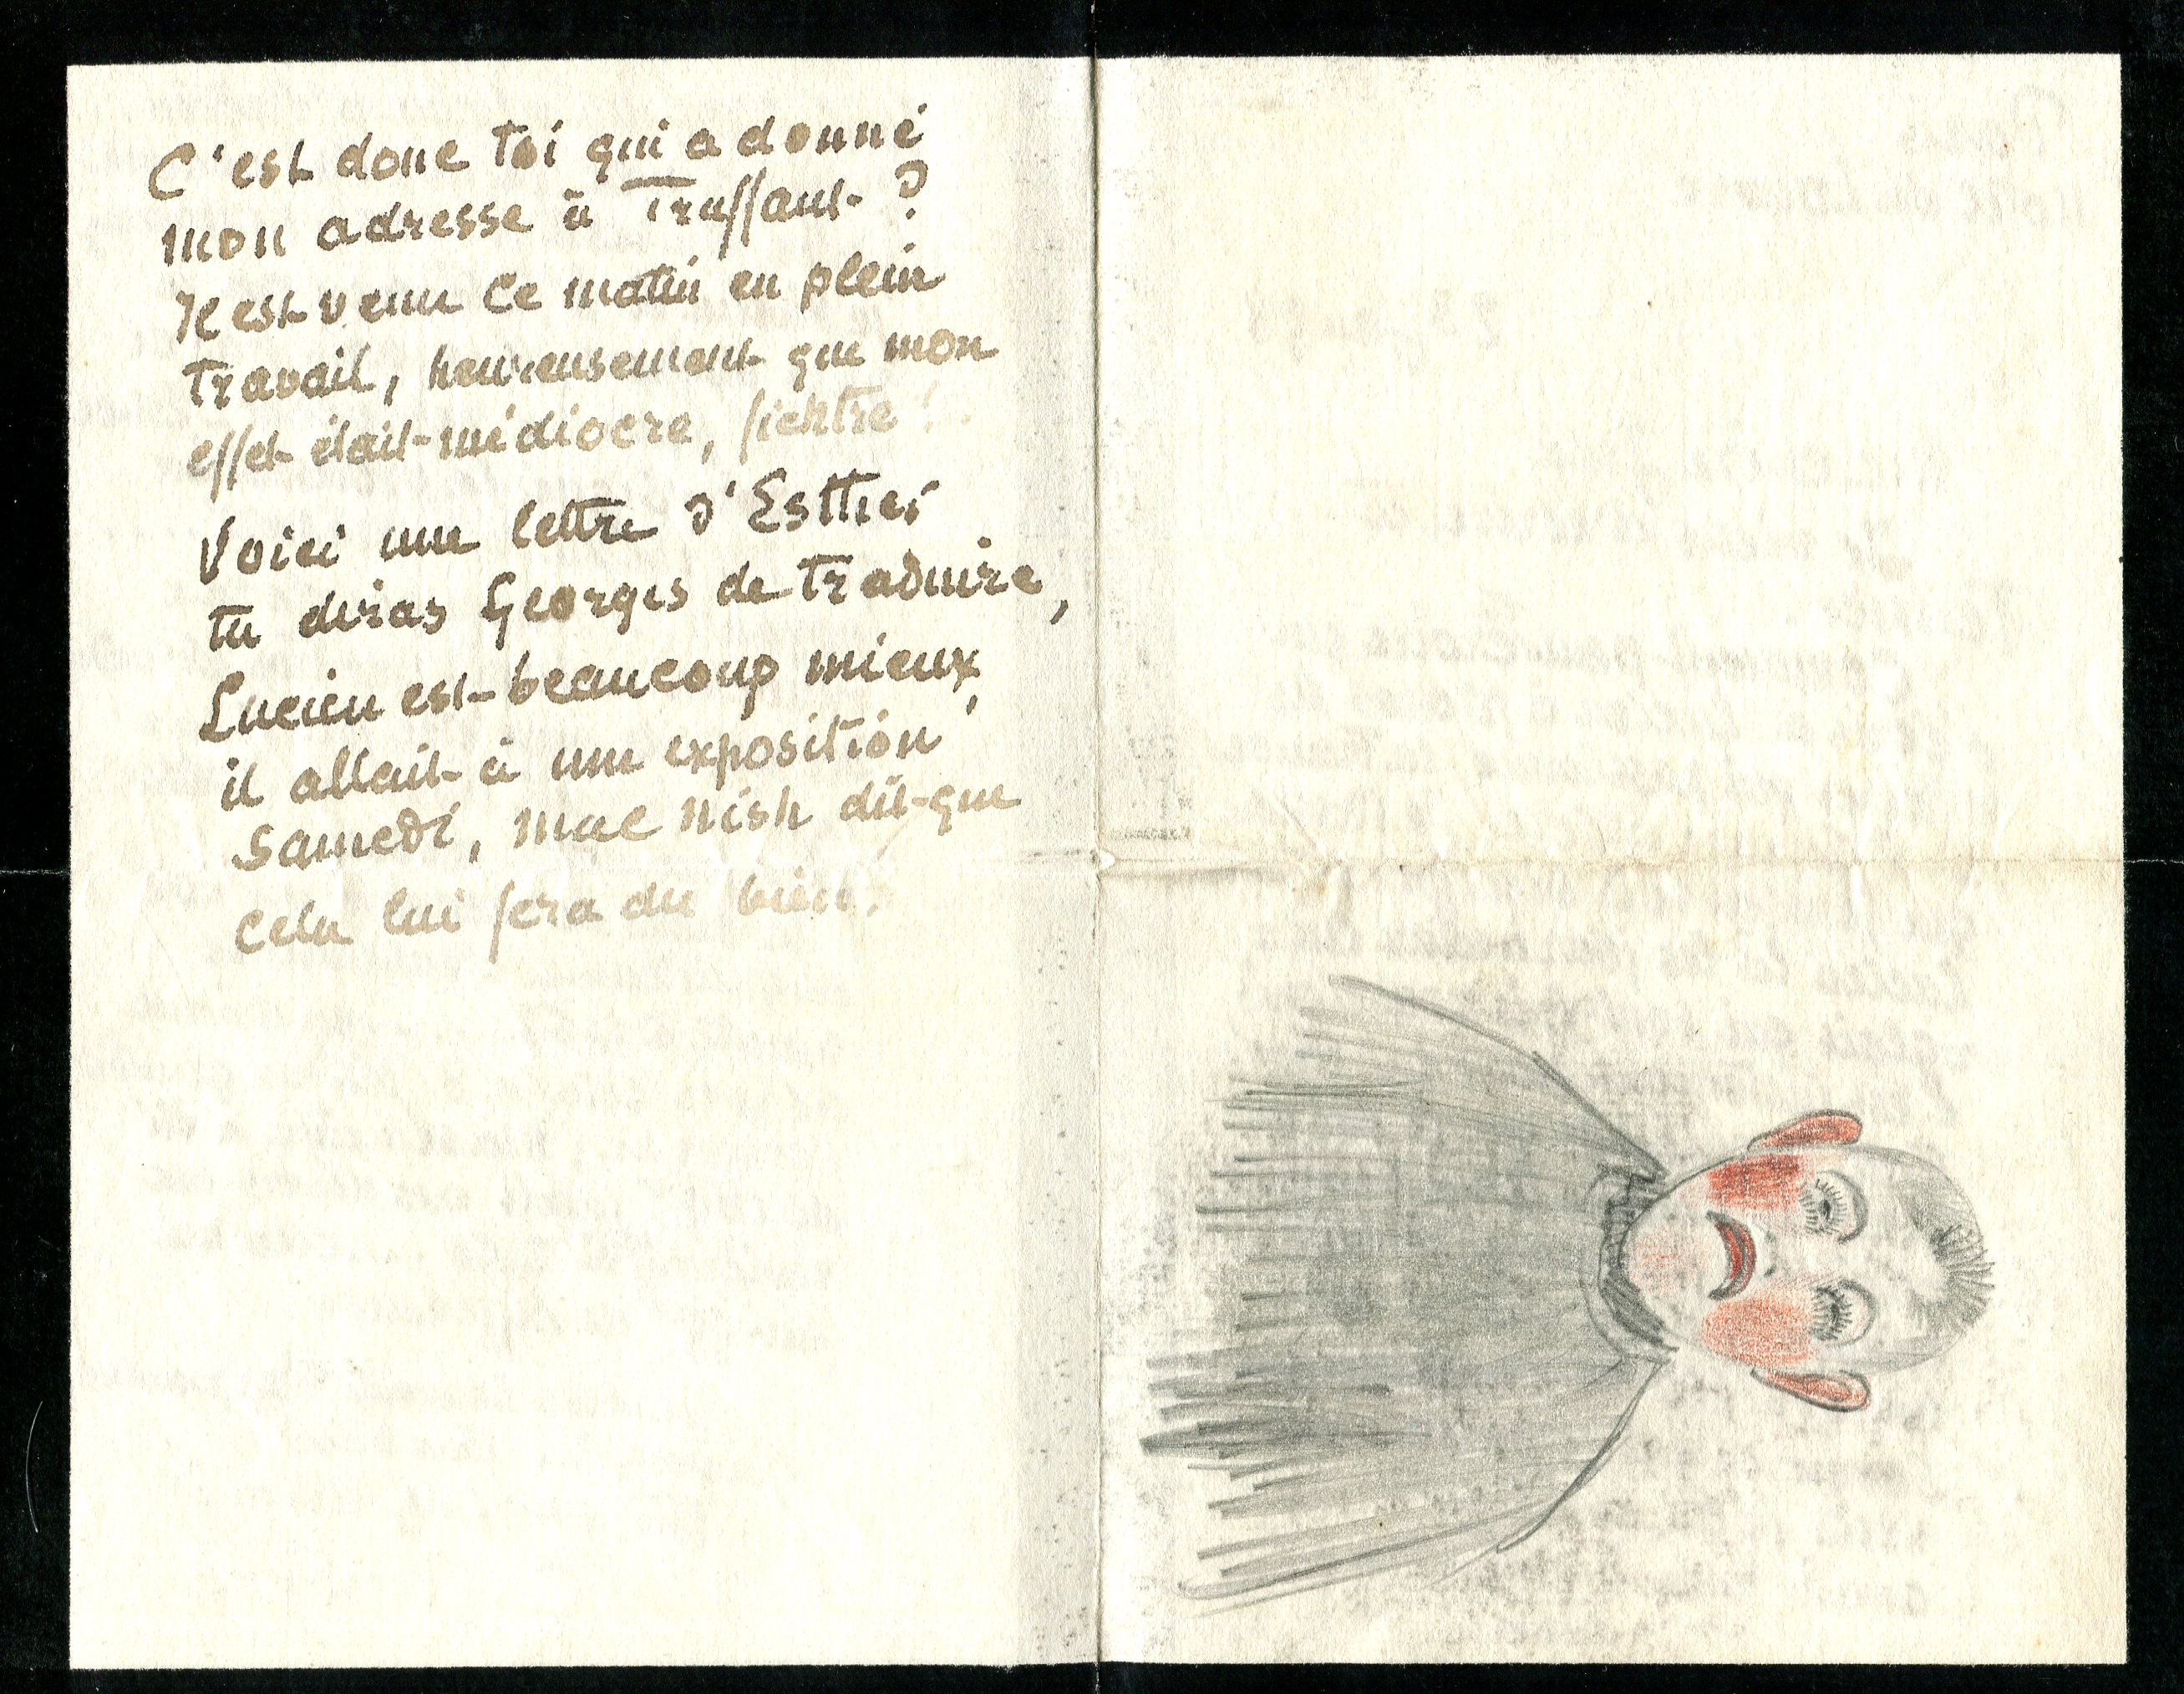 C'est donc toi qui a donné
mon adresse à Truffaut ?
Il est venu ce matin en plein
travail, heureusement que mon
effet était médiocre, fichtre !
Voici une lettre d'Esther
tu diras Georges de traduire,
Lucien est beaucoup mieux,
il allait à une exposition
Samedi, Mac Nish dit que
cela lui fera du bien.